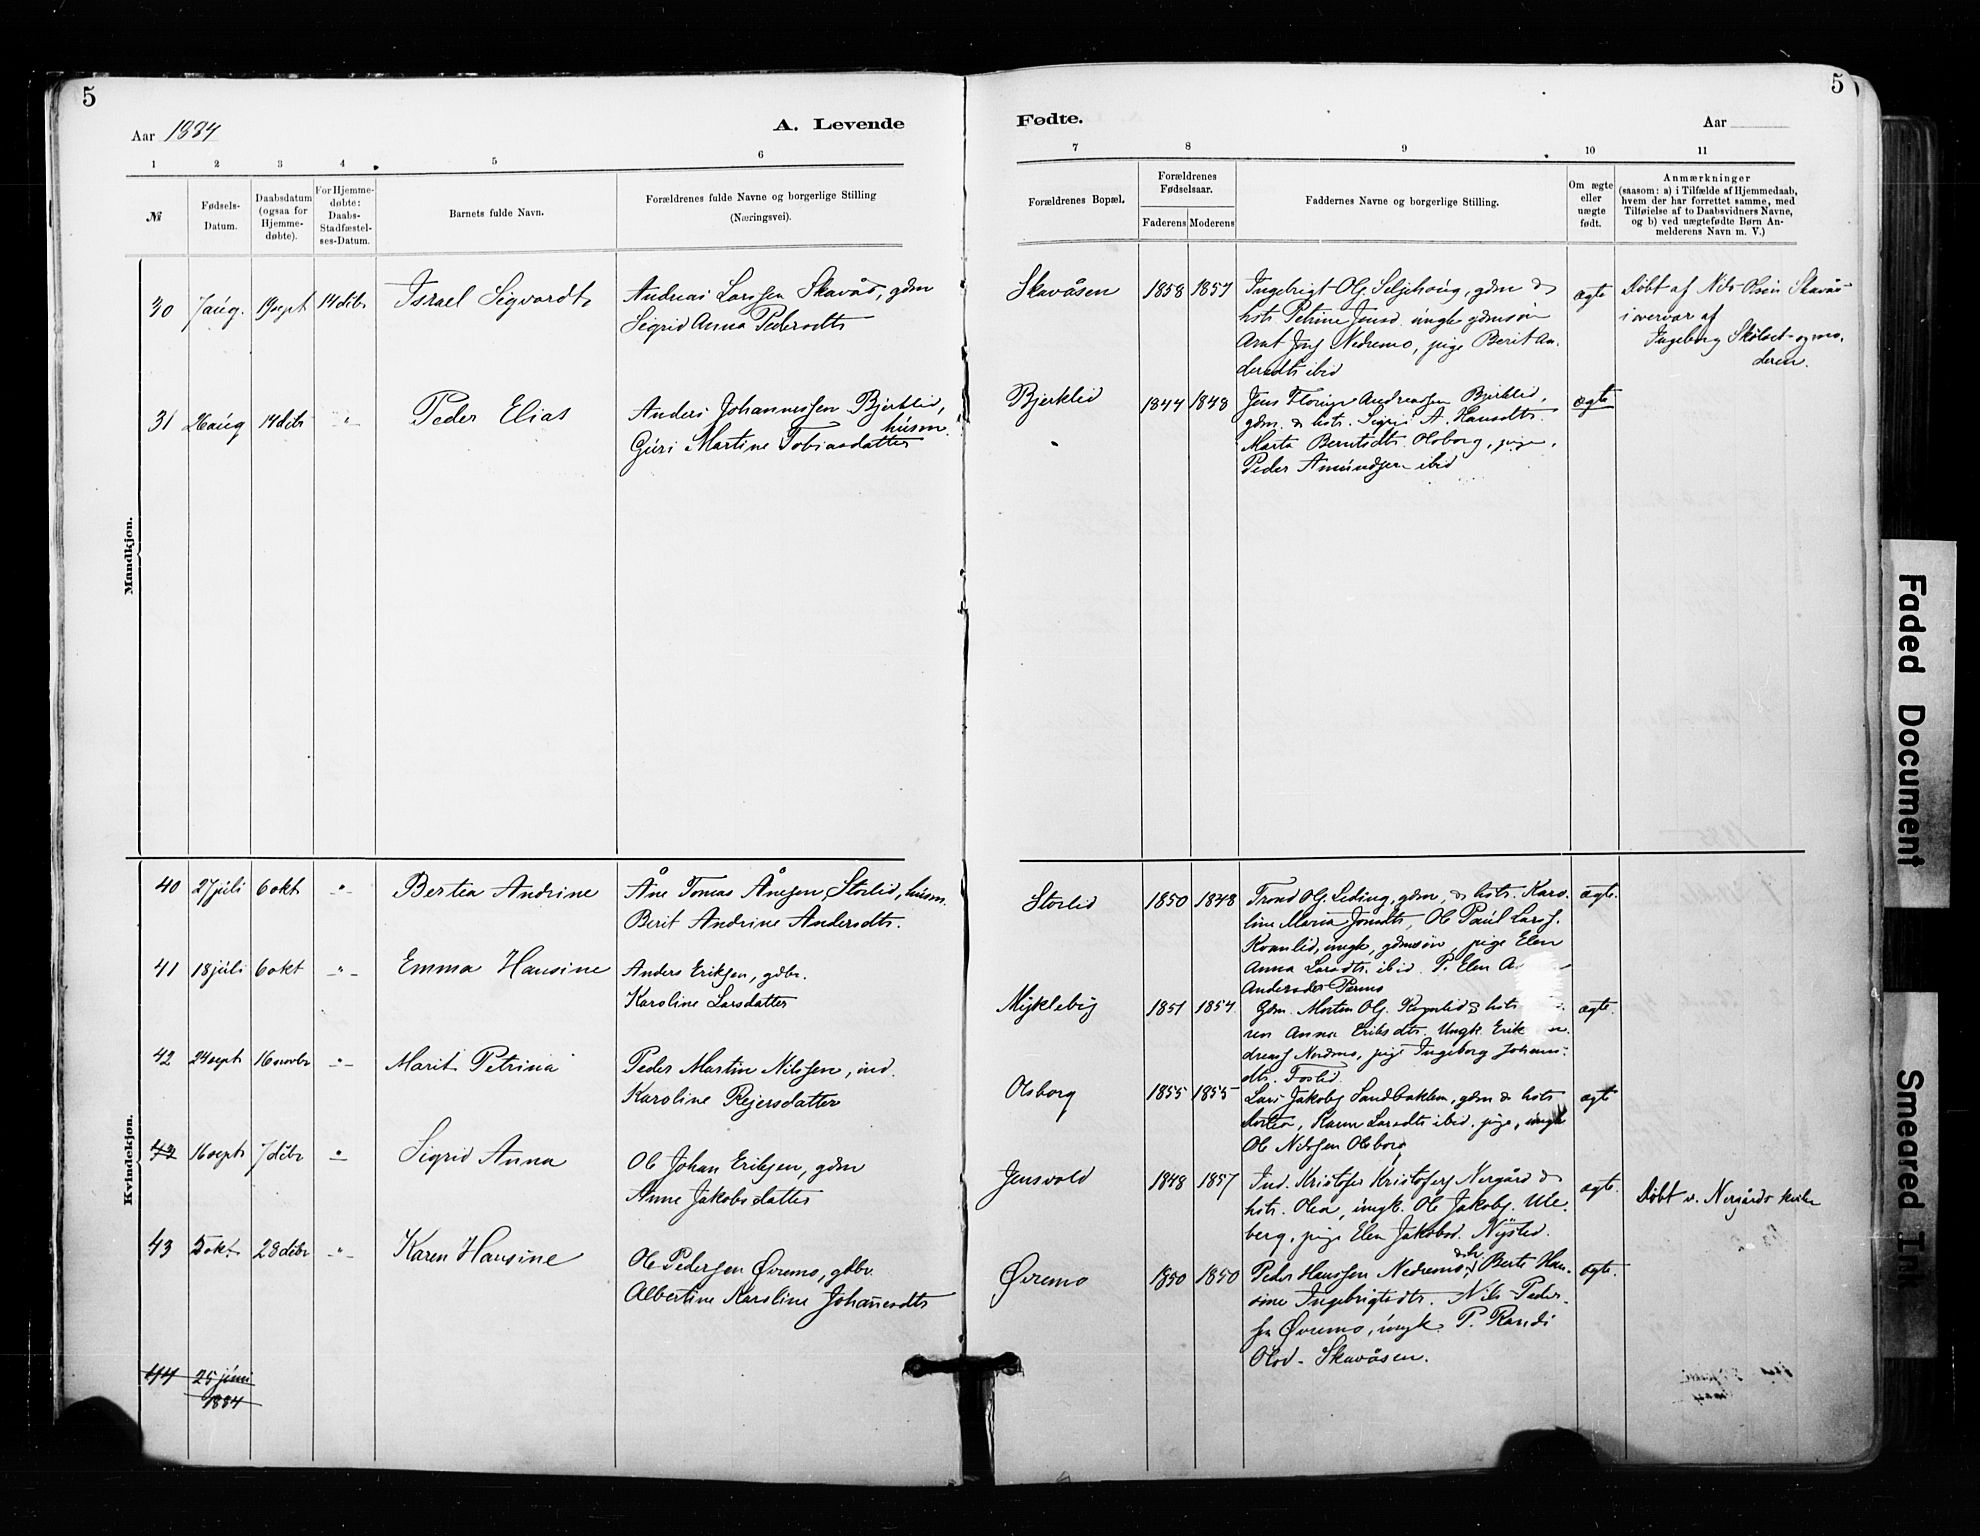 5
5
Aar 1884
A. Levende
Fødte.
Aar
1
2
3
4
5
6
7
8
9
10
11
№
Fødsels-
Datum.
Daabsdatum
(ogsaa for
Hjemme-
døbte).
For Hjemme-
døbte:
Daabs-
Stadfæstel-
ses-Datum.
Barnets fulde Navn.
Forældrenes fulde Navne og borgerlige Stilling
(Næringsvei).
Forældrenes Bopæl.
Forældrenes
Fødselsaar.
Faderens
Moderens
Faddernes Navne og borgerlige Stilling.
Om ægte
eller
uægte
født.
Anmærkninger
(saasom: a) i Tilfælde af Hjemmedaab,
hvem der har forrettet samme, med
Tilføielse af to Daabsvidners Navne,
og b) ved uægtefødte Børn An-
melderens Navn m. V.)
Mandkjøn.
30 7 aug. 19 sept 14 dcbr Israel Sigvardt
Andreas Larssen Skavås, gdm
Sigrid Anna Pedersdtr
Skavåsen 1858 1857
Ingebrigt Olss Seljehaug, gdm &
hstr Petrine Jensd. ungk gdmsøn
Arnt Jnss Nedremo, pige Berit An-
dersdtr ibid
ægte
Døbt af Nils Olsen Skavås
i overvær af
Ingeborg Skølset og mo-
deren.
31 26 aug 14 dcbr -"- Peder Elias
Anders Johannessen Bjerklid,
husm.
Guri Martine Tobiasdatter
Bjerklid 1844 1848
Jens Floring Andreassen Bjerklid,
gdm. & hstr. Sigri A. Hansdtr.
Marta Berntsdtr. Olsborg, pige,
Peder Amundsen ibid
ægte
Kvindekjøn.
40 27 juli 6 okt -"- Bertea Andrine
Åne Tomas Ånesen Storlid, husm.
Berit Andrine Andersdtr.
Storlid 1850 1848
Trond Ols. Leding, gdm, & hstr. Karo-
line Maria Jonsdtr, Ole Paul Larss.
Kvanlid, ungk, gdmsøn, pige Elen
Anna Larsdtr. ibid. P. Elen
Andersdtr Permo
ægte.
41 18 juli 6 okt -"- Emma Hansine
Anders Eriksen, gdbr.
Karoline Larsdatter
Myklebig 1851 1854
Gdm. Morten Ols. Kvanlid & hstr
ren Anna Eriksdtr. Ungk. Erik
dreass Nordmo, pige Ingeborg Johans-
dtr. Foslid.
ægte.
42 24 sept 16 novbr -"- Marit Petrina
Peder Martin Nilssen, ind.
Karoline Rejersdatter
Olsborg 1855 1855
Lars Jakobs Sandbakken, gdm & hstr
Dortea, Karen Larsdtr ibid. pige, ungk
Ole Nilssen Olsborg
ægte
43 16 sept 7 dcbr -"- Sigrid Anna
Ole Johan Eriksen, gdm
Anne Jakobsdatter
Jensvold 1848 1857
Ind. Kristofer Kristofers Nergård &
hstr. Olea, ungk. Ole Jakobs. Ule-
berg, pige Elen Jakobsd. Nysted.
ægte.
Døbt v. Nergårds kirke
43 5 okt 28 dcbr -"- Karen Hansine
Ole Pedersen Øvremo, gdbr.
Albertine Karoline Johannesdtr
Øvremo 1850 1850
Peder Hanssen Nedremo & h. Berte Han-
sine Ingebrigtsdtr. Nils Peder-
sen Øvremo, ungk. P. Randi
Olsd. Skavåsen.
ægte.
44 25 juni
1884
Faded Document
Smeared Ink